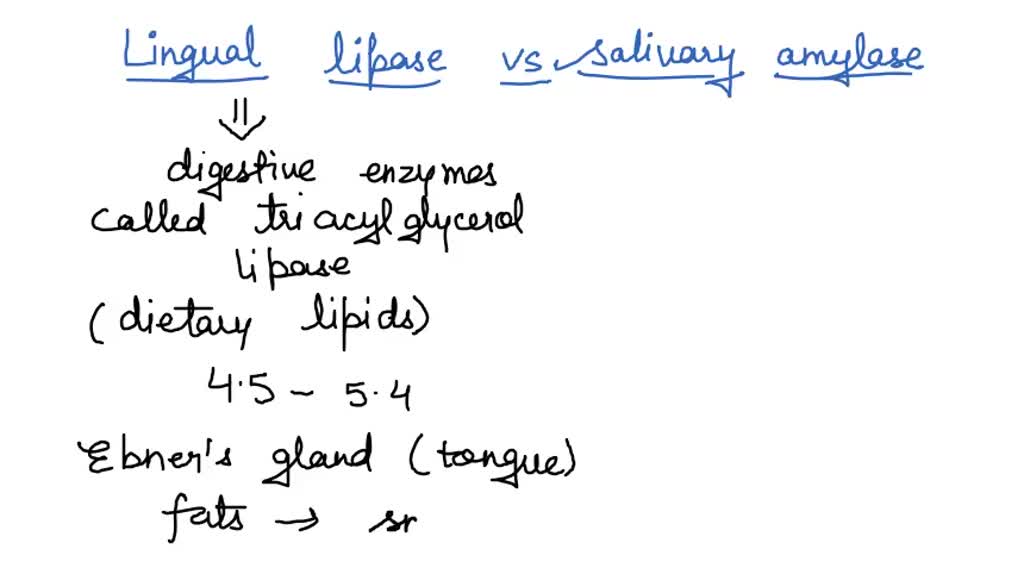 Lingual lipase vs salivary amylase
digestive enzymes
called triacylglycerol
lipase
(dietary lipids)
4.5 - 5.4
Ebner's gland (tongue)
fats → sr